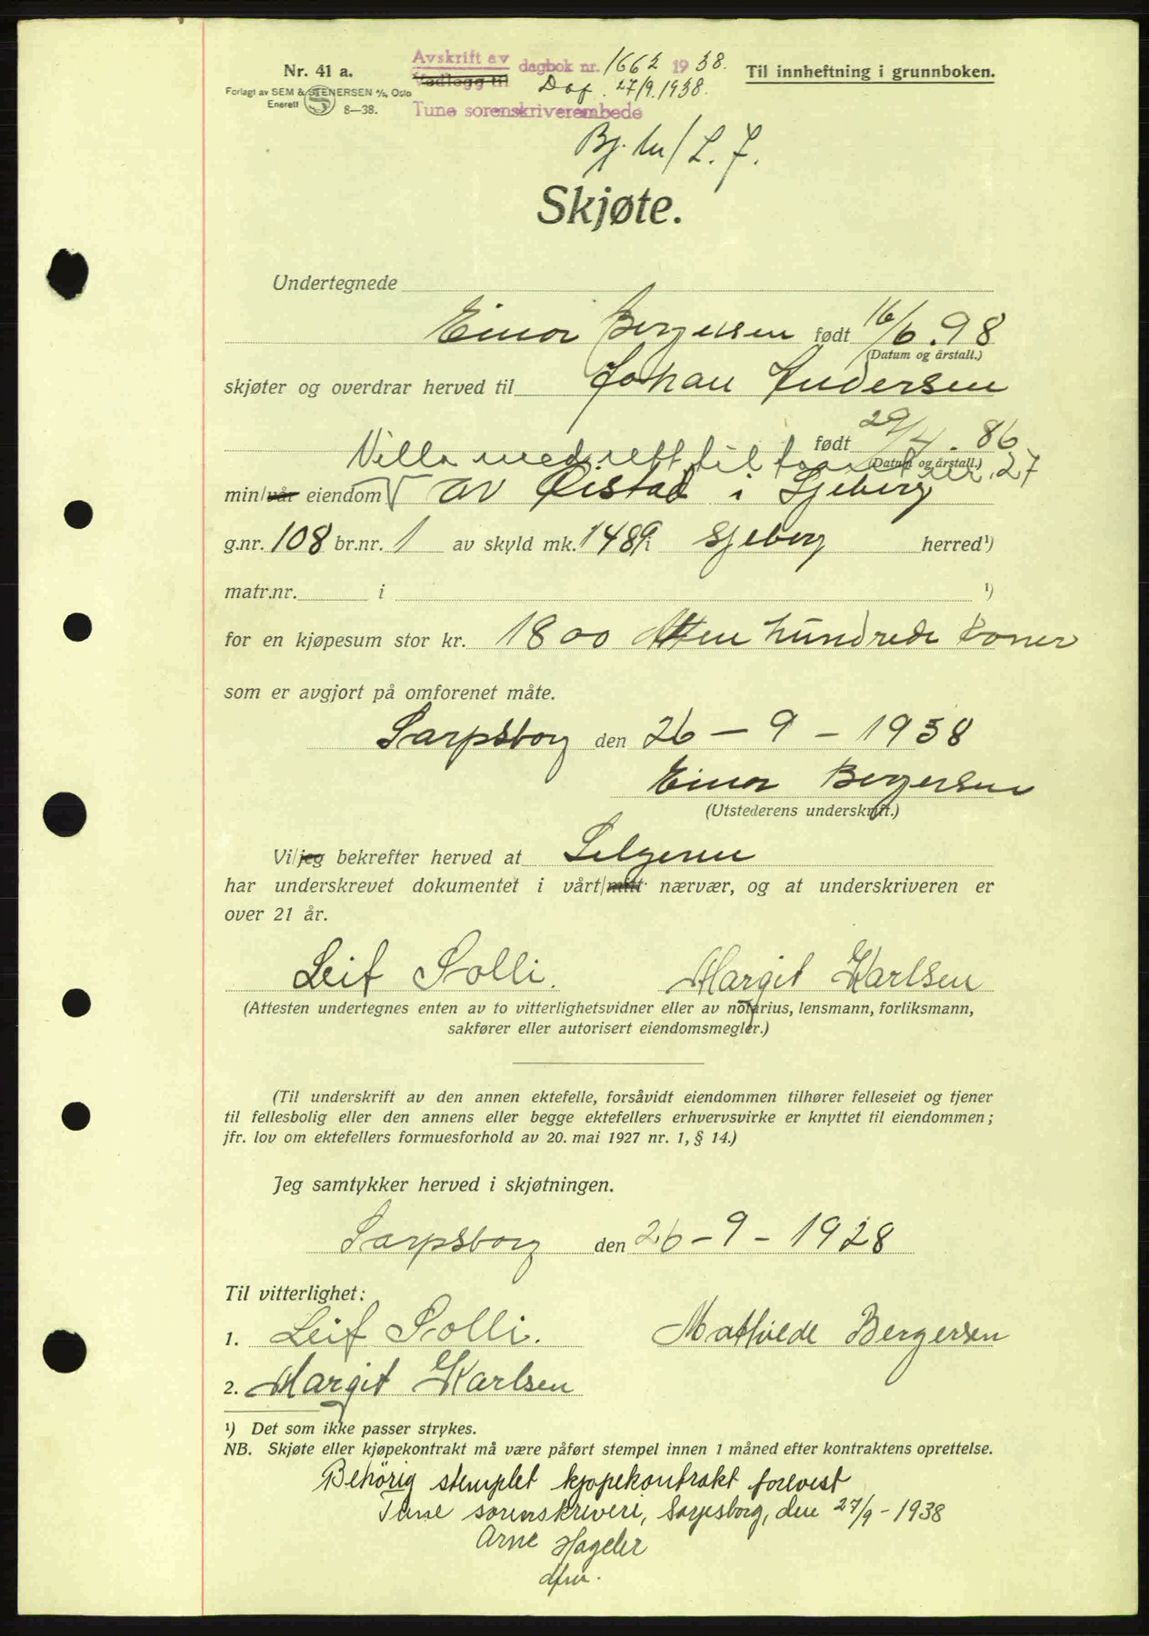 Nr. 41 a.
Forlagt av SEM & STENERSEN A/s, Oslo
Enerett S 8—38.
Avskrift av
Vedlegg til
dagbok nr. 1662 1938.
Daf. 27/9.1938.
Tune sorenskriverembede
Til innheftning i grunnboken.
L. F.
Skjøte.
Undertegnede
Einar Bergersen født 16/6. 98
(Datum og årstall.)
skjøter og overdrar herved til Johan Andersen
født 29/4. 86
(Datum og årstall.)
Villa med rett til 27
min/vår eiendom av Øistad i Skjeberg
g.nr. 108 br.nr. 1 av skyld mk. 1489 i Skjeberg herred¹)
matr.nr. i ¹)
for en kjøpesum stor kr. 1800 Atten hundrede kroner
som er avgjort på omforenet måte.
Sarpsborg den 26 – 9 – 1938
Einar Bergersen
(Utstederens underskrift.)
Vi/jeg bekrefter herved at Selgeren
har underskrevet dokumentet i vårt/mitt nærvær, og at underskriveren er
over 21 år.
Leif Solli. Margit Karlsen
(Attesten undertegnes enten av to vitterlighetsvidner eller av notarius, lensmann, forliksmann,
sakfører eller autorisert eiendomsmegler.)
(Til underskrift av den annen ektefelle, forsåvidt eiendommen tilhører felleseiet og tjener
til fellesbolig eller den annens eller begge ektefellers erhvervsvirke er knyttet til eiendommen;
jfr. lov om ektefellers formuesforhold av 20. mai 1927 nr. 1, § 14.)
Jeg samtykker herved i skjøtningen.
Sarpsborg den 26 – 9 – 1928
Til vitterlighet:
1. Leif Solli. Mathilde Bergersen
2. Margit Karlsen
¹) Det som ikke passer strykes.
NB. Skjøte eller kjøpekontrakt må være påført stempel innen 1 måned efter kontraktens oprettelse.
Behörig stemplet kjøpekontrakt forevist
Tune sorenskriveri, Sarpsborg, den 27/9 – 1938
Arne Hageler
dfm.